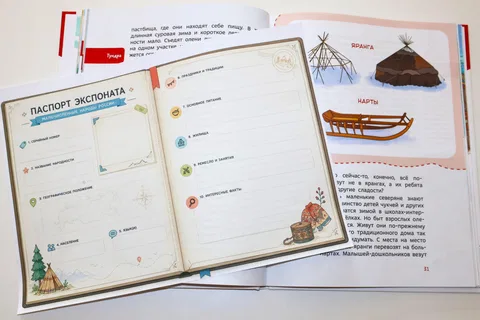 пастбища, где они находят себе пищу. В
длинная суровая зима и короткое
ности мало. Съедят олени
на одном участке
Тундра
ЯРАНГА
НАРТЫ
ПАСПОРТ ЭКСПОНАТА
МАЛОЧИСЛЕННЫЕ НАРОДЫ РОССИИ
2. НАЗВАНИЕ НАРОДНОСТИ
3. ГЕОГРАФИЧЕСКОЕ ПОЛОЖЕНИЕ
4. НАСЕЛЕНИЕ
5. ЯЗЫКИ
6. ПРАЗДНИКИ И ТРАДИЦИИ
7. ОСНОВНОЕ ПИТАНИЕ
8. ЖИЛИЩА
9. РЕМЕСЛО И ЗАНЯТИЯ
10. ИНТЕРЕСНЫЕ ФАКТЫ
сейчас-то, конечно, всё по-
не в ярангах, а их ребята
другие сладости?
маленькие северяне знают
детей чукчей и других
зимой в школах-интер-
Но быт взрослых оле-
Живут они по-прежнему
традиционного дома так
С места на место
яранги перевозят на боль-
нартах. Малышей-дошкольников везут
31